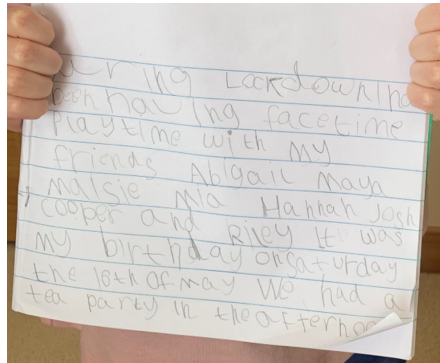 uring Lockdown I ha
been having facetime
playtime with my
friends Abigail Maya
maisie Mia Hannah Josh
cooper and Riley It was
my birthday on saturday
the 16th of may We had a
tea party in the afternoo